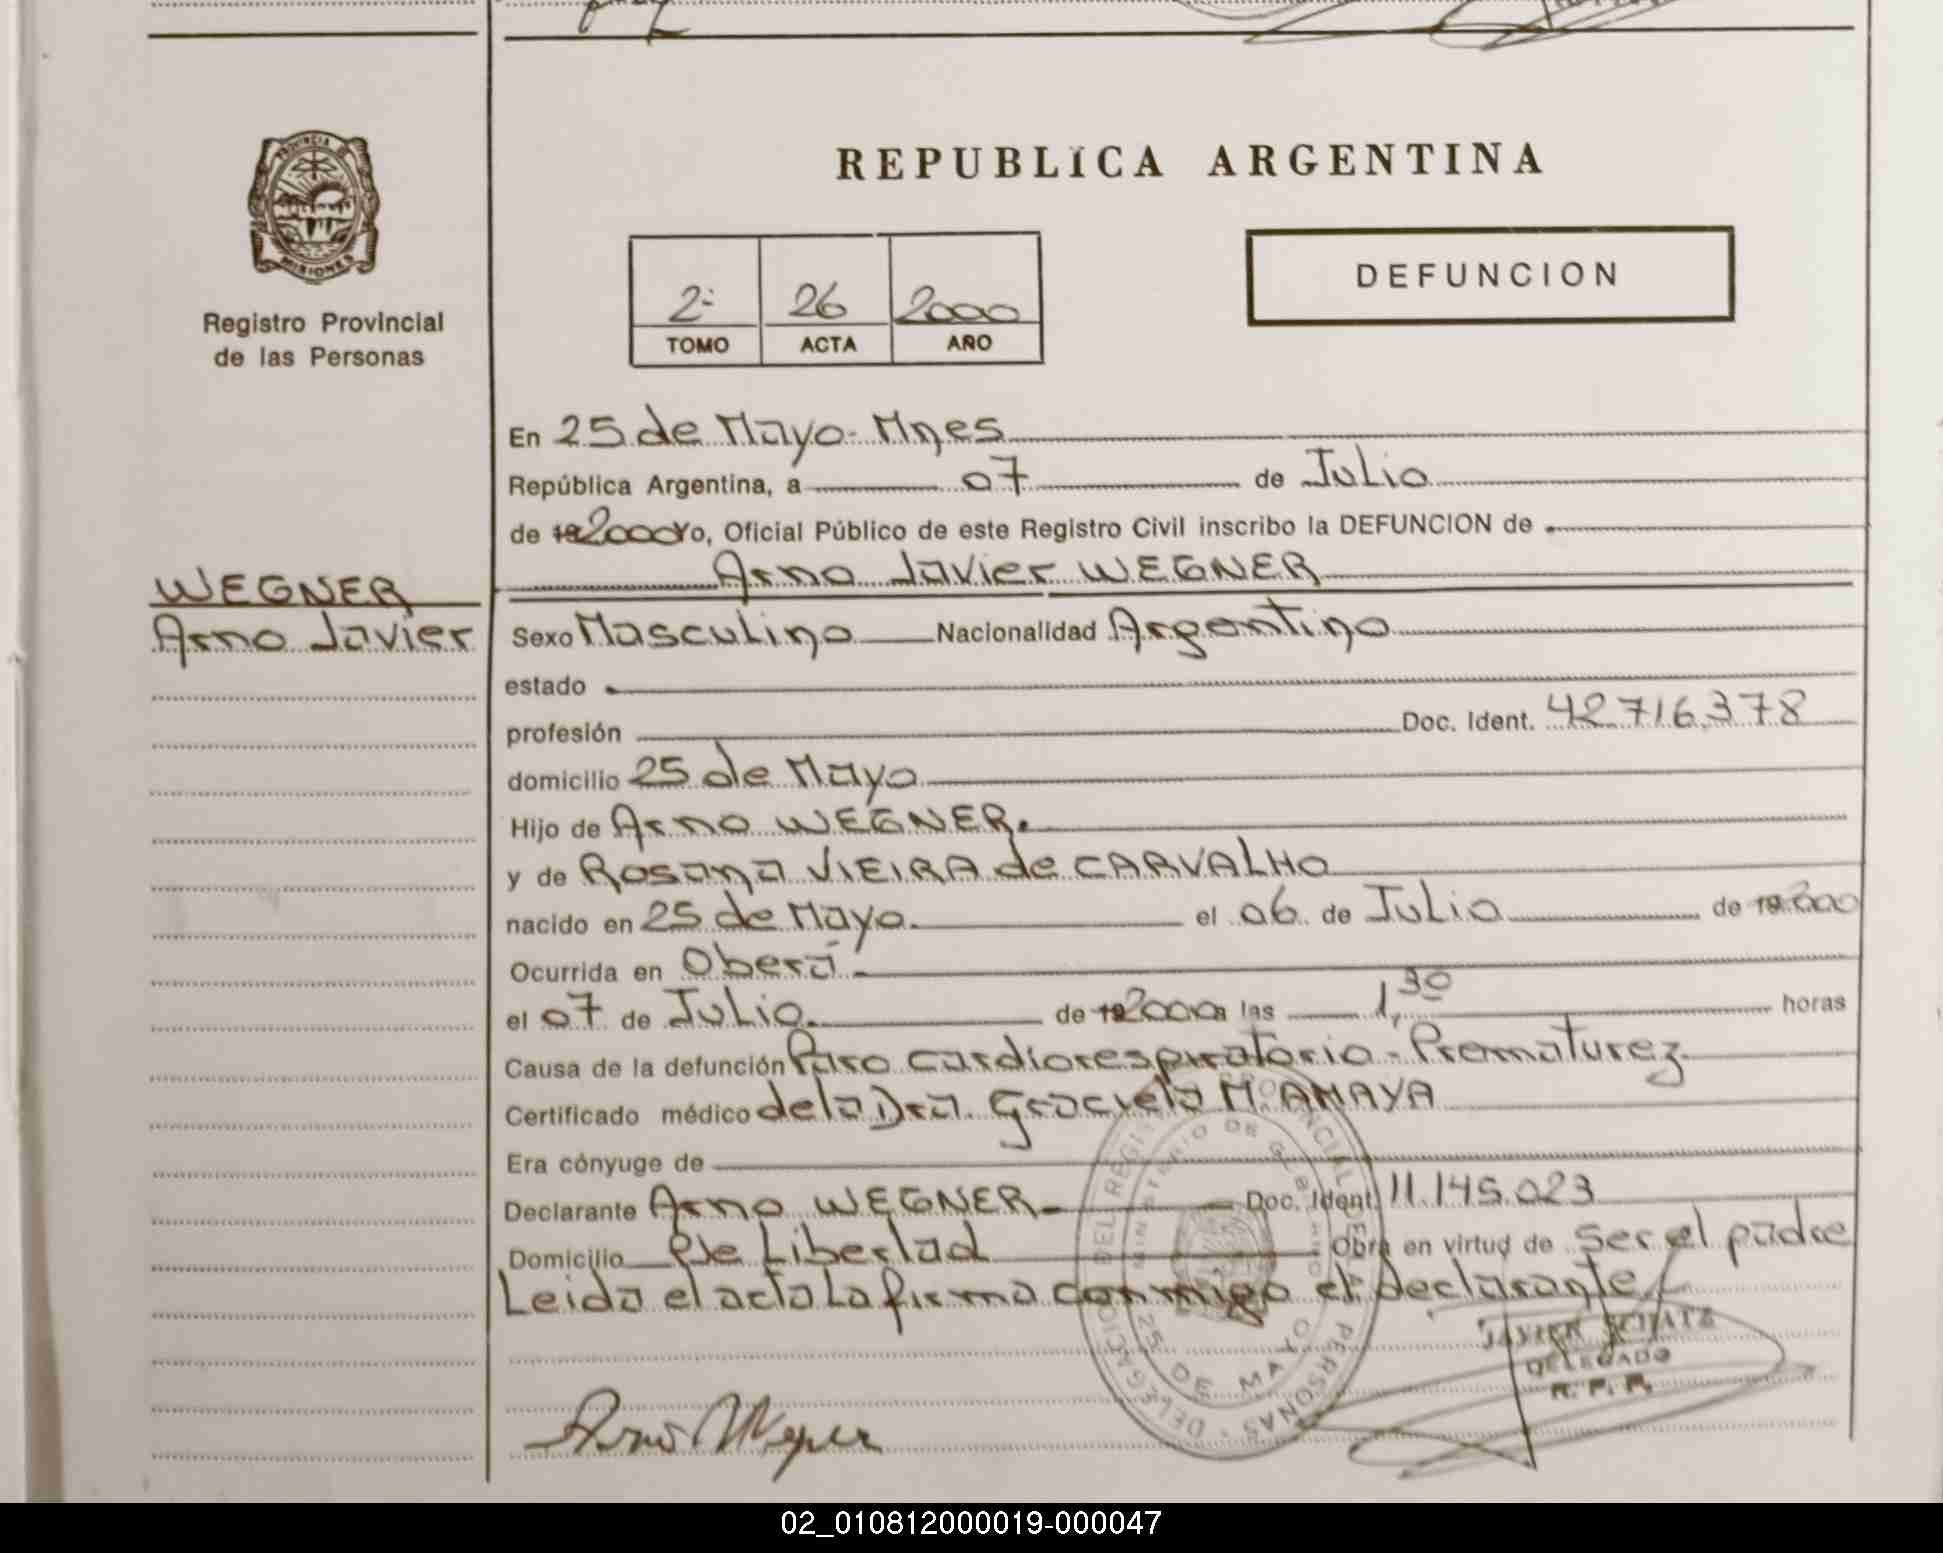 PROVINCIA DE
MISIONES
Registro Provincial
de las Personas
REPUBLICA ARGENTINA
2º 26 2000
TOMO ACTA AÑO
DEFUNCION
En 25 de Mayo - Mnes
República Argentina, a 07 de Julio
de 19 2000 Yo, Oficial Público de este Registro Civil inscribo la DEFUNCION de
Arno Javier WEGNER
WEGNER
Arno Javier
Sexo Masculino Nacionalidad Argentino
estado
profesión Doc. Ident. 42716.378
domicilio 25 de Mayo
Hijo de Arno WEGNER.
y de Rosana VIEIRA de CARVALHO
nacido en 25 de Mayo. el 06 de Julio de 19 2000
Ocurrida en Oberá
el 07 de Julio. de 19 2000 a las 1,30 horas
Causa de la defunción Paro cardiorespiratorio - Prematurez
Certificado médico de la Dra. Graciela M. AMAYA
Era cónyuge de
Declarante Arno WEGNER Doc. Ident. 11.145.023
Domicilio Pje Libertad Obra en virtud de ser el padre
Leida el acta la firma conmigo el declarante
DELEGACION DEL REGISTRO PROVINCIAL DE LAS PERSONAS
MINISTERIO DE GOBIERNO
25 DE MAYO
JAVIER SCHATZ
DELEGADO
R. P. P.
Arno Wegner
02_010812000019-000047